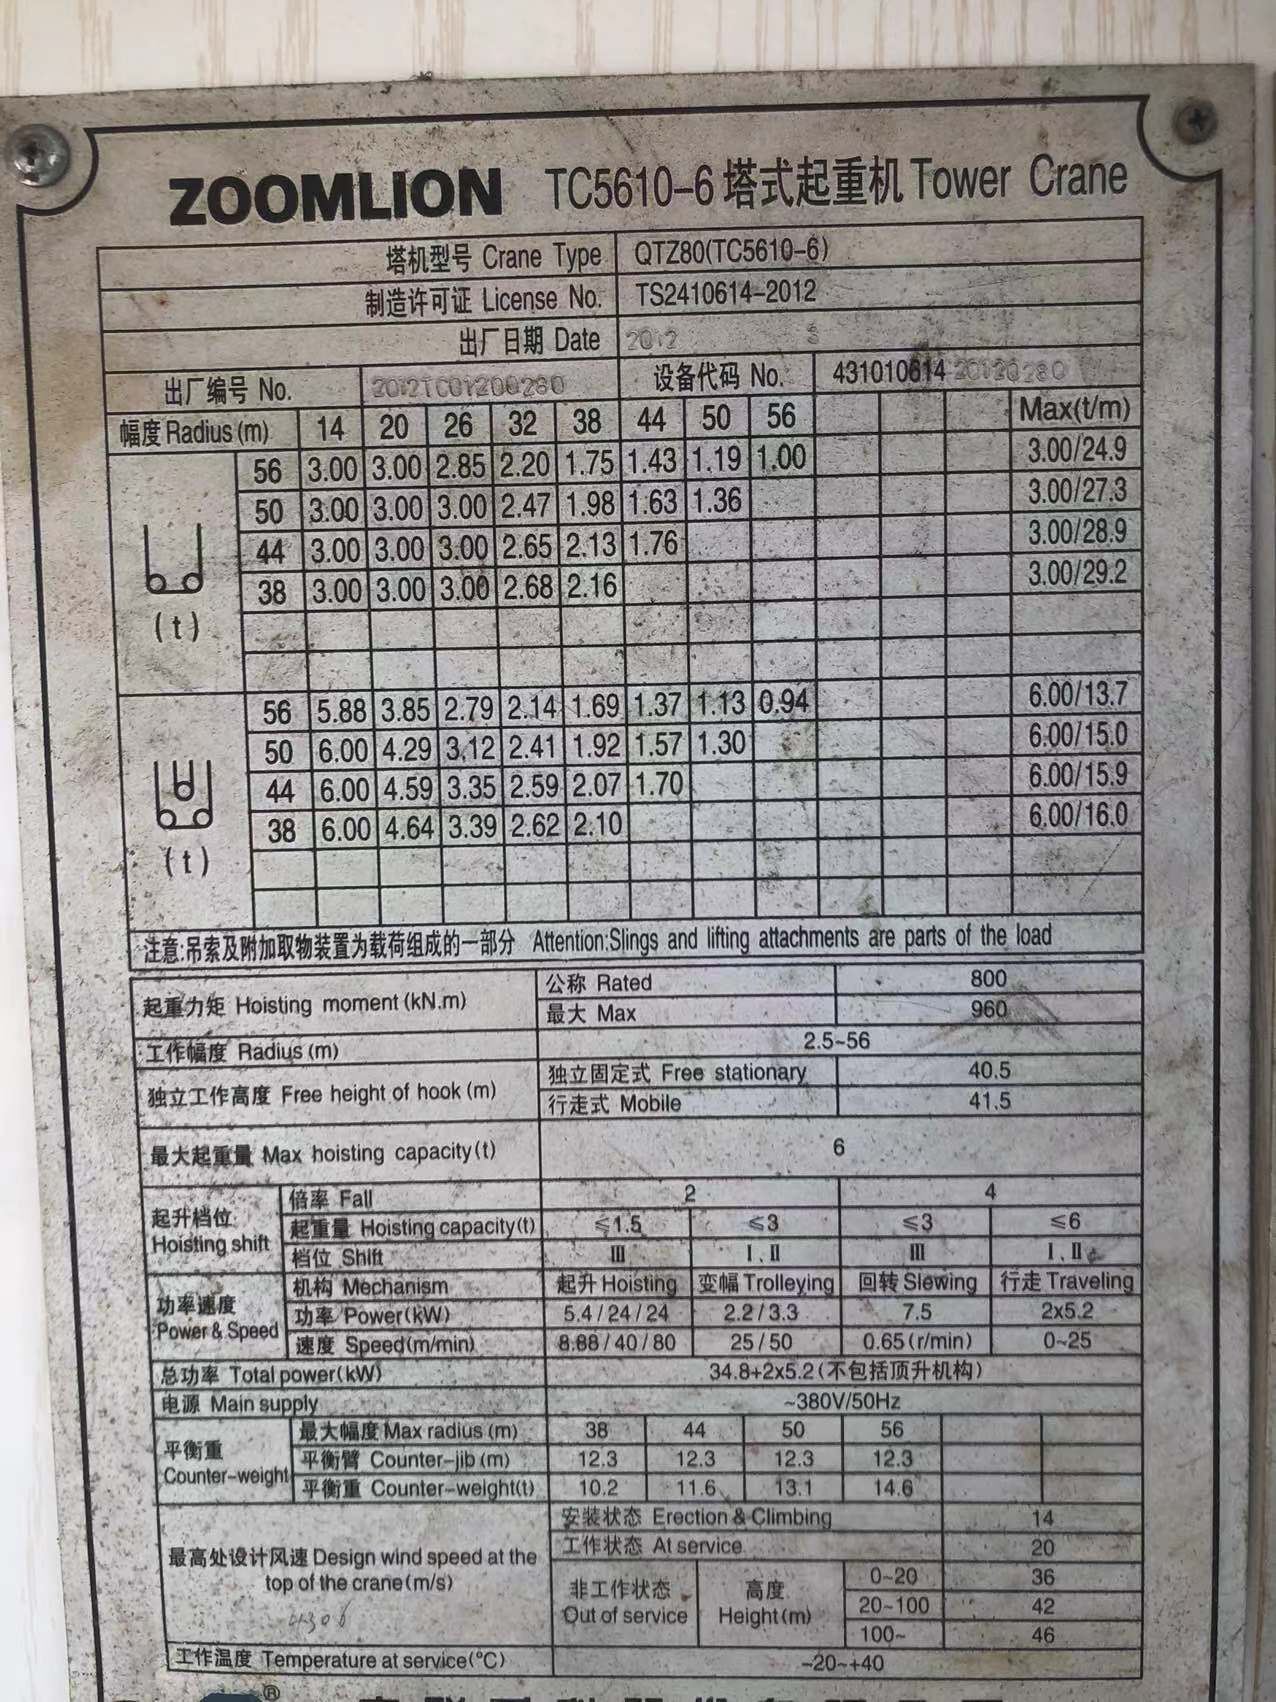 ZOOMLION TC5610-6塔式起重机 Tower Crane
塔机型号 Crane Type QTZ80(TC5610-6)
制造许可证 License No. TS2410614-2012
出厂日期 Date 2012 3
出厂编号 No. 2012TC01200280 设备代码 No. 43101061420120280
幅度 Radius(m) 14 20 26 32 38 44 50 56 Max(t/m)
56 3.00 3.00 2.85 2.20 1.75 1.43 1.19 1.00 3.00/24.9
50 3.00 3.00 3.00 2.47 1.98 1.63 1.36 3.00/27.3
44 3.00 3.00 3.00 2.65 2.13 1.76 3.00/28.9
38 3.00 3.00 3.00 2.68 2.16 3.00/29.2
(t)
56 5.88 3.85 2.79 2.14 1.69 1.37 1.13 0.94 6.00/13.7
50 6.00 4.29 3.12 2.41 1.92 1.57 1.30 6.00/15.0
44 6.00 4.59 3.35 2.59 2.07 1.70 6.00/15.9
38 6.00 4.64 3.39 2.62 2.10 6.00/16.0
(t)
注意:吊索及附加取物装置为载荷组成的一部分 Attention:Slings and lifting attachments are parts of the load
起重力矩 Hoisting moment(kN.m) 公称 Rated 800
最大 Max 960
工作幅度 Radius(m) 2.5~56
独立工作高度 Free height of hook(m) 独立固定式 Free stationary 40.5
行走式 Mobile 41.5
最大起重量 Max hoisting capacity(t) 6
起升档位 Hoisting shift 倍率 Fall 2 4
起重量 Hoisting capacity(t) ≤1.5 ≤3 ≤3 ≤6
档位 Shift Ⅲ Ⅰ、Ⅱ Ⅲ Ⅰ、Ⅱ
功率速度 Power & Speed 机构 Mechanism 起升 Hoisting 变幅 Trolleying 回转 Slewing 行走 Traveling
功率 Power(kW) 5.4/24/24 2.2/3.3 7.5 2x5.2
速度 Speed(m/min) 8.88/40/80 25/50 0.65(r/min) 0~25
总功率 Total power(kW) 34.8+2x5.2(不包括顶升机构)
电源 Main supply ~380V/50Hz
平衡重 Counter-weight 最大幅度 Max radius(m) 38 44 50 56
平衡臂 Counter-jib(m) 12.3 12.3 12.3 12.3
平衡重 Counter-weight(t) 10.2 11.6 13.1 14.6
最高处设计风速 Design wind speed at the top of the crane(m/s) 安装状态 Erection & Climbing 14
工作状态 At service 20
非工作状态 Out of service 高度 Height(m) 0~20 36
20~100 42
100~ 46
工作温度 Temperature at service(°C) -20~+40